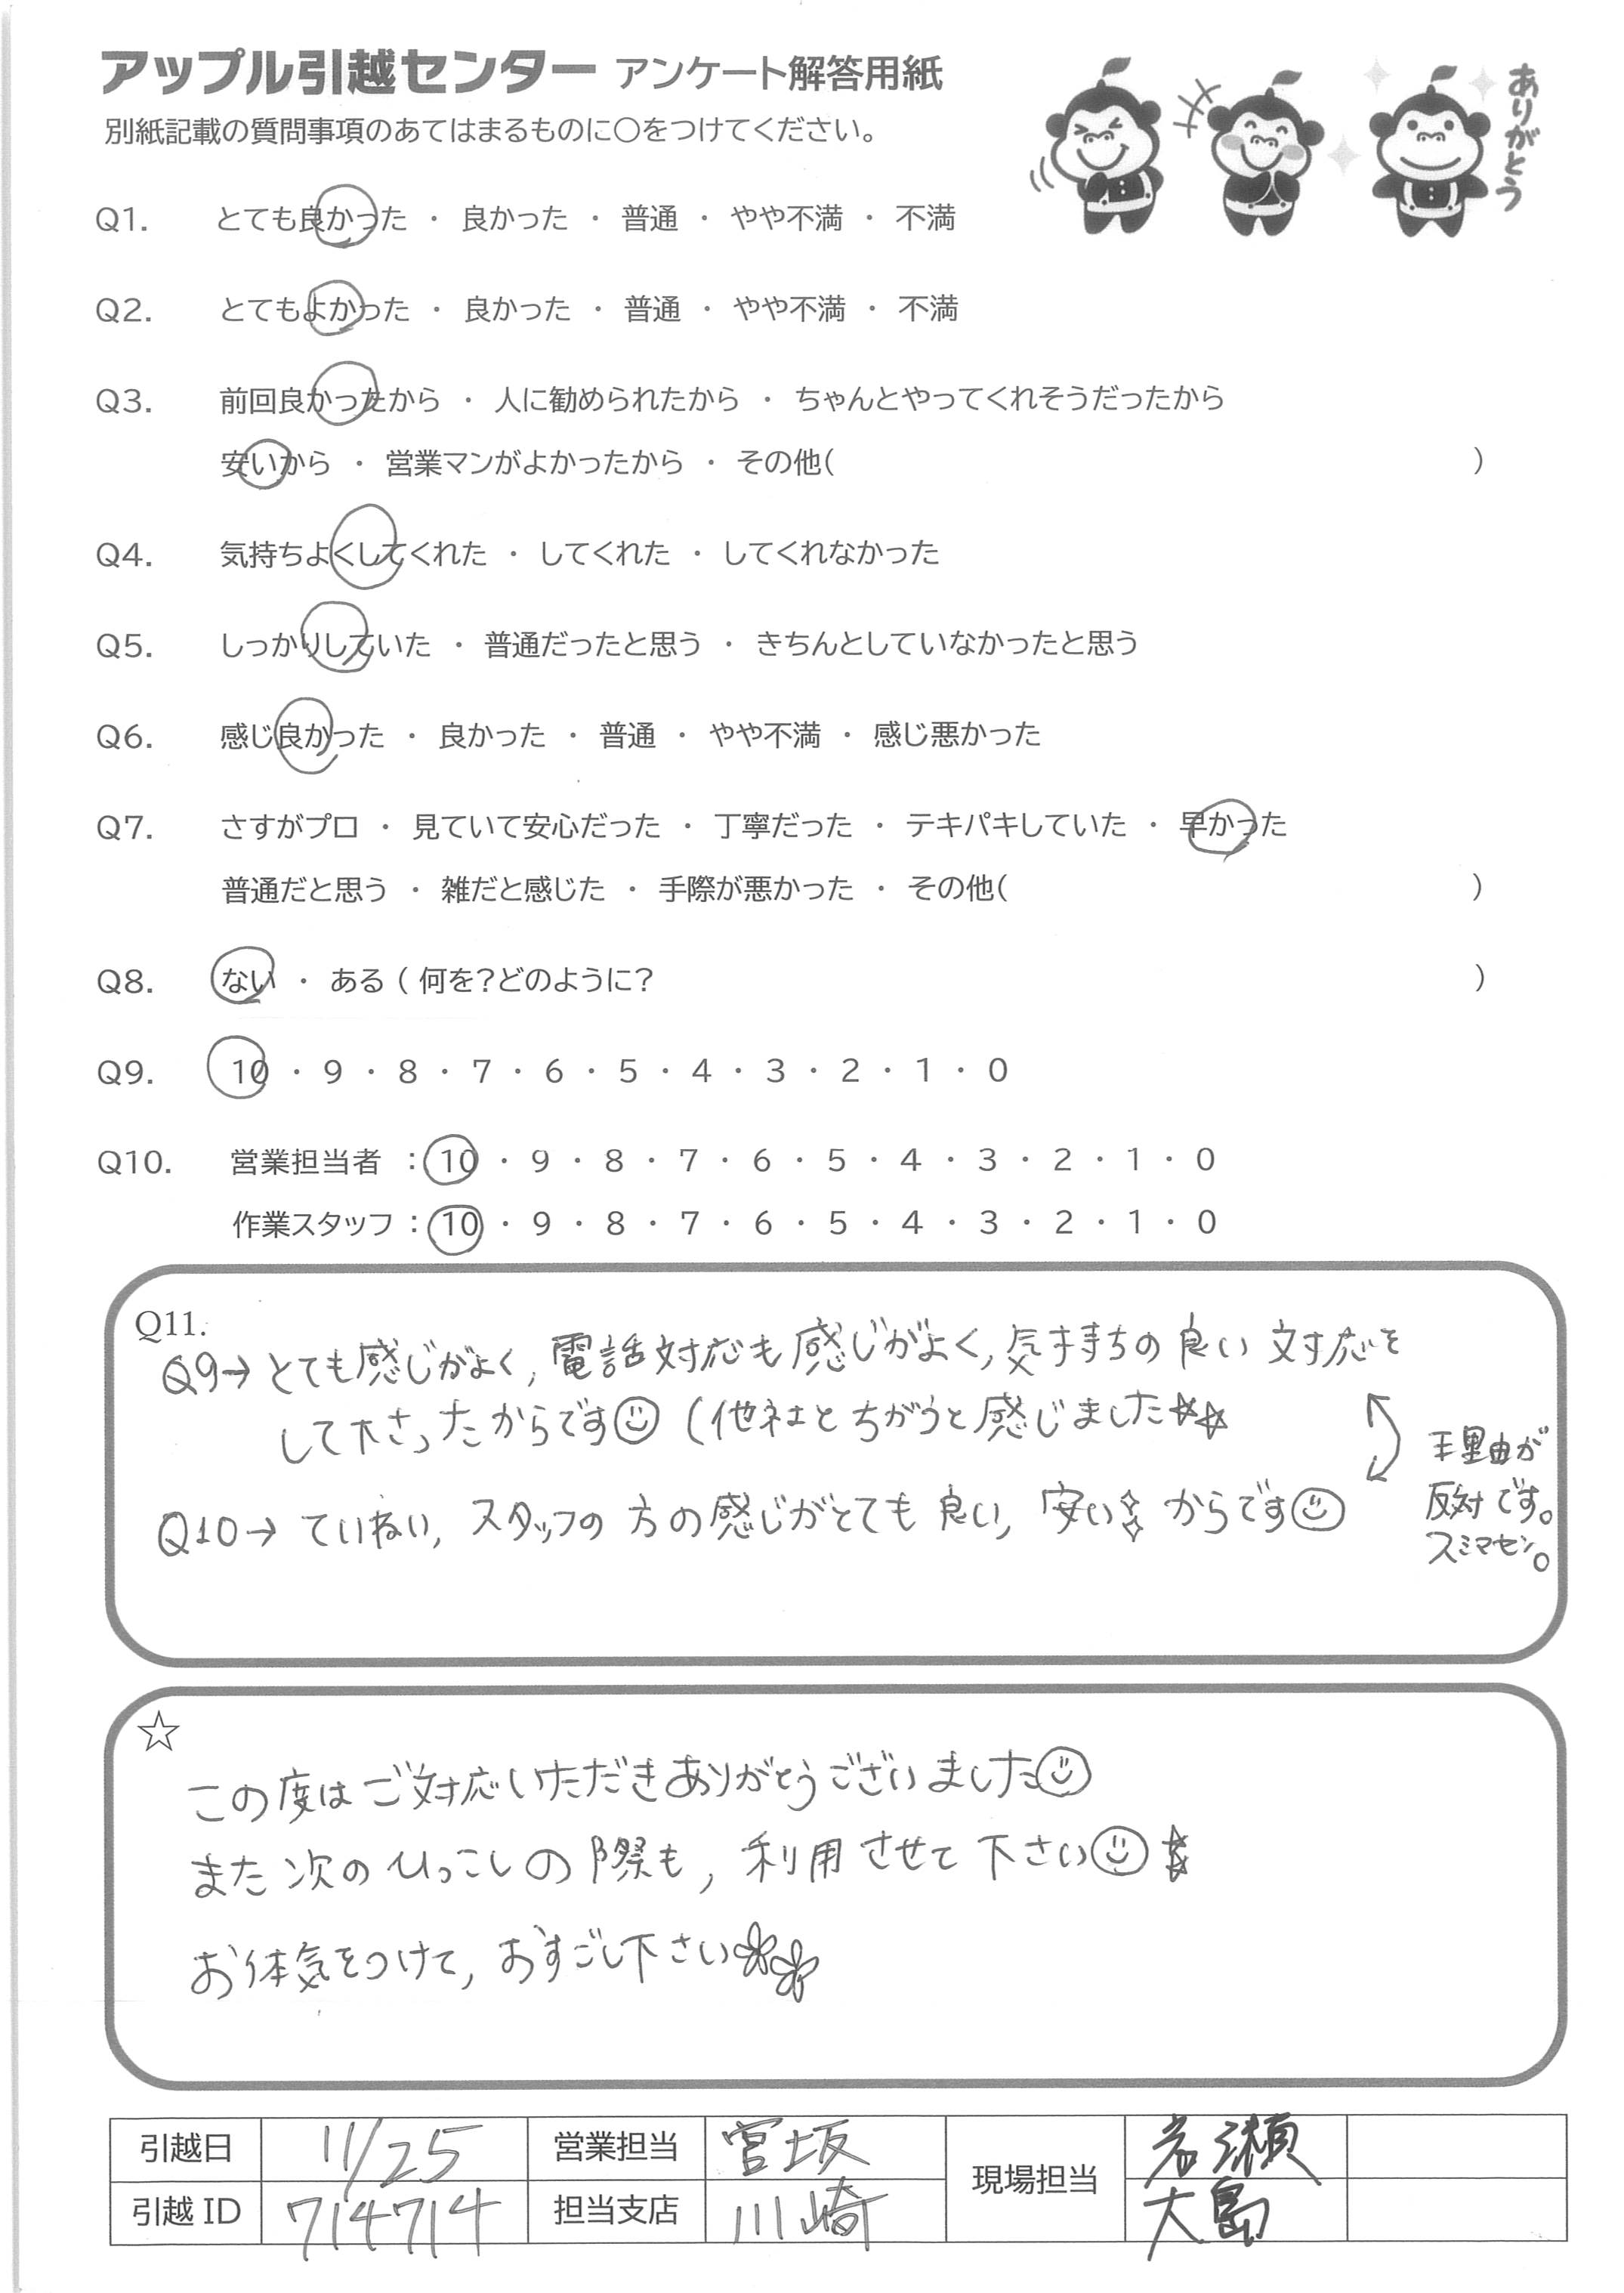 アップル引越センター アンケート解答用紙
ありがとう
別紙記載の質問事項のあてはまるものに○をつけてください。
Q1. とても良かった ・ 良かった ・ 普通 ・ やや不満 ・ 不満
Q2. とてもよかった ・ 良かった ・ 普通 ・ やや不満 ・ 不満
Q3. 前回良かったから ・ 人に勧められたから ・ ちゃんとやってくれそうだったから
安いから ・ 営業マンがよかったから ・ その他( )
Q4. 気持ちよくしてくれた ・ してくれた ・ してくれなかった
Q5. しっかりしていた ・ 普通だったと思う ・ きちんとしていなかったと思う
Q6. 感じ良かった ・ 良かった ・ 普通 ・ やや不満 ・ 感じ悪かった
Q7. さすがプロ ・ 見ていて安心だった ・ 丁寧だった ・ テキパキしていた ・ 早かった
普通だと思う ・ 雑だと感じた ・ 手際が悪かった ・ その他( )
Q8. ない ・ ある ( 何を?どのように? )
Q9. 10 ・ 9 ・ 8 ・ 7 ・ 6 ・ 5 ・ 4 ・ 3 ・ 2 ・ 1 ・ 0
Q10. 営業担当者 : 10 ・ 9 ・ 8 ・ 7 ・ 6 ・ 5 ・ 4 ・ 3 ・ 2 ・ 1 ・ 0
作業スタッフ : 10 ・ 9 ・ 8 ・ 7 ・ 6 ・ 5 ・ 4 ・ 3 ・ 2 ・ 1 ・ 0
Q11.
Q9→とても感じがよく,電話対応も感じがよく,気持ちの良い対応を
して下さったからです☺(他社とちがうと感じました☆☆
Q10→ていねい,スタッフの方の感じがとても良い,安い からです☺
理由が
反対です。
スミマセン。
☆
この度はご対応いただきありがとうございました☺
また次のひっこしの際も,利用させて下さい☺☆
お体気をつけて,おすごし下さい
引越日 11/25 営業担当 宮坂 現場担当 岩瀬
引越ID 714714 担当支店 川崎 大島